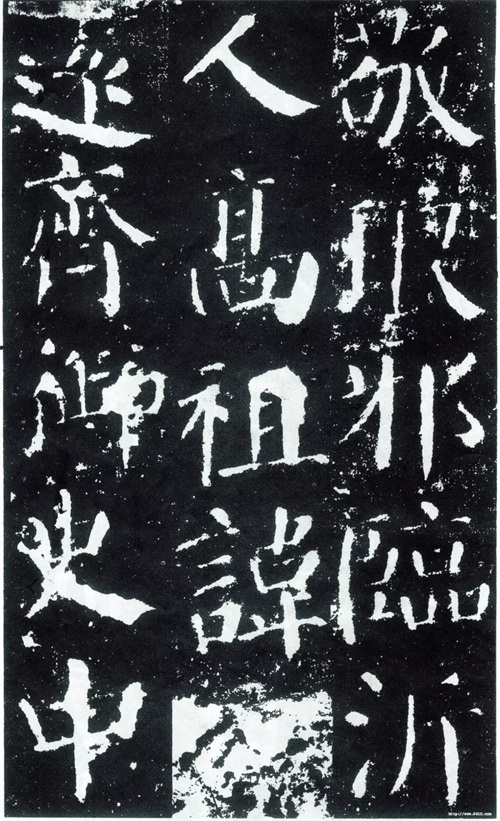 敬琅邪臨沂
人高祖諱
遠齊御史中
http://www.9610.com